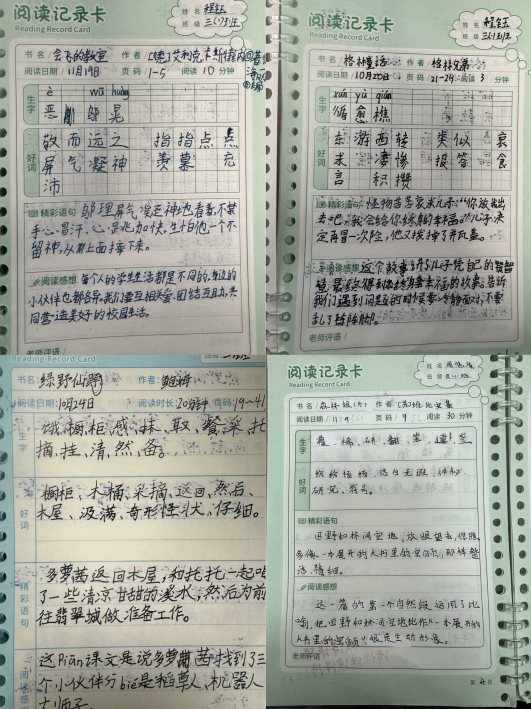 阅读记录卡
Reading Record Card
姓名 程钰
班级 三(3)班
书名/会飞的教室 作者/【德】艾利克·卡斯特纳
阅读日期 11月19日 页码 1-5 阅读 10 分钟
生字
è wū huǎng
恶 邬 晃
好词
敬而远之 指指点点
屏气凝神 羡慕 充
沛
精彩语句 邬理屏气凝神地看着,不禁
手心冒汗、心跳加快,生怕他一个不
留神,从树上摔下来。
阅读感想 每个人的学生生活都是不同的,身边的
小伙伴也都各异。我们要互相关爱、团结互助,共
同营造美好的校园生活。
老师评语/
阅读记录卡
Reading Record Card
姓名 程钰
班级 三(3)班
书名/格林童话 作者/格林兄弟
阅读日期 10月20日 页码 21-29 阅读 3 分钟
生字
xún yù qiáo
循 愈 樵
好词
东游西转 类似 哀
求 凄惨 报答 食
言 积攒
精彩语句 怪物苦苦哀求儿子:“你放我出
去吧,我会给你
儿子决
定再冒一次险,他又拔掉了并瓶盖。
阅读感想 这个故事讲了儿子凭自己的
智慧,最
幸福的故事。告诉
我们遇到问题的时候要冷静面对,不要
乱了阵脚。
老师评语/
书名:绿野仙踪 作者:鲍姆
阅读日期:10月24日 阅读时长:20分钟 页码:19~41
饿、橱、柜、感、抹、取、餐、采、托
摘、挂、清、然、备。
好词
橱柜、木桶、采摘、返回、然后、
木屋、汲满、奇形怪状、仔细。
精彩语句
多萝茜返回木屋,和托托一起喝
了一些清凉甘甜的溪水,然后为前
往翡翠城做准备工作。
阅读感
这piān课文是说多萝茜找到了三
个小伙伴分bié是稻草人、机器人
大师子
阅读记录卡
Reading Record Card
姓名
班级
书名/森林报(秋) 作者/【苏】维·比安基
阅读日期 11.9 页码 9 阅读 30 分钟
生字
好词
研究、符号。
精彩语句
田野和林间空地,放眼望去,你很
多像一本展开的大书里的空白页,那样整
洁、精细。
阅读感想
这一篇的第一个自然段运用了比
喻,把田野和林间空地比作“一本展开的
大书里的空页”,很是生动形象。
老师评语/
第 4 页